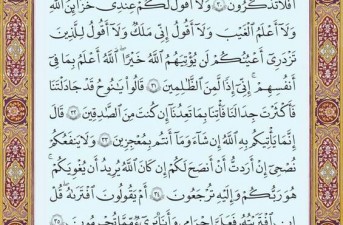 أَفَلَا تَذَكَّرُونَ ٣٠ وَلَا أَقُولُ لَكُمْ عِندِي خَزَائِنُ اللَّهِ
وَلَا أَعْلَمُ الْغَيْبَ وَلَا أَقُولُ إِنِّي مَلَكٌ وَلَا أَقُولُ لِلَّذِينَ
تَزْدَرِي أَعْيُنُكُمْ لَن يُؤْتِيَهُمُ اللَّهُ خَيْرًا اللَّهُ أَعْلَمُ بِمَا فِي
أَنفُسِهِمْ إِنِّي إِذًا لَّمِنَ الظَّالِمِينَ ٣١ قَالُوا يَانُوحُ قَدْ جَادَلْتَنَا
فَأَكْثَرْتَ جِدَالَنَا فَأْتِنَا بِمَا تَعِدُنَا إِن كُنتَ مِنَ الصَّادِقِينَ ٣٢ قَالَ
إِنَّمَا يَأْتِيكُم بِهِ اللَّهُ إِن شَاءَ وَمَا أَنتُم بِمُعْجِزِينَ ٣٣ وَلَا يَنفَعُكُمْ
نُصْحِي إِنْ أَرَدتُّ أَنْ أَنصَحَ لَكُمْ إِن كَانَ اللَّهُ يُرِيدُ أَن يُغْوِيَكُمْ
هُوَ رَبُّكُمْ وَإِلَيْهِ تُرْجَعُونَ ٣٤ أَمْ يَقُولُونَ افْتَرَاهُ قُلْ
إِنِ افْتَرَيْتُهُ فَعَلَيَّ إِجْرَامِي وَأَنَا بَرِيءٌ مِّمَّا تُجْرِمُونَ ٣٥